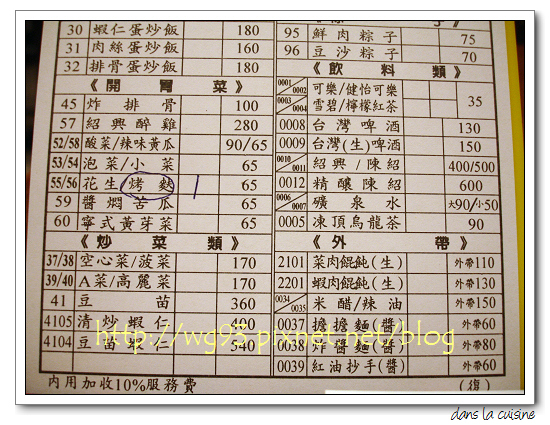 30 蝦仁蛋炒飯 180
31 肉絲蛋炒飯 160
32 排骨蛋炒飯 180
《開胃菜》
45 炸排骨 100
57 紹興醉雞 280
52/58 酸菜/辣味黃瓜 90/65
53/54 泡菜/小菜 65
55/56 花生烤麩 65 1
59 醬燜苦瓜 65
60 寧式黃芽菜 65
《炒菜類》
37/38 空心菜/菠菜 170
39/40 A菜/高麗菜 170
41 豆苗 360
4105 清炒蝦仁 400
4104 豆苗蝦仁 540
內用加收10%服務費
95 鮮肉粽子 75
96 豆沙粽子 70
《飲料類》
0001/0002 可樂/健怡可樂 35
0003/0004 雪碧/檸檬紅茶
0008 台灣啤酒 130
0009 台灣(生)啤酒 150
0010/0011 紹興/陳紹 400/500
0012 精釀陳紹 600
0006/0007 礦泉水 大90/小50
0005 凍頂烏龍茶 90
《外帶》
2101 菜肉餛飩(生) 外帶110
2201 蝦肉餛飩(生) 外帶130
0034/0035 米醋/辣油 外帶150
0037 擔擔麵(醬) 外帶60
0038 炸醬麵(醬) 外帶80
0039 紅油抄手(醬) 外帶60
(復)
http://wg93.pixnet.net/blog
dans la cuisine